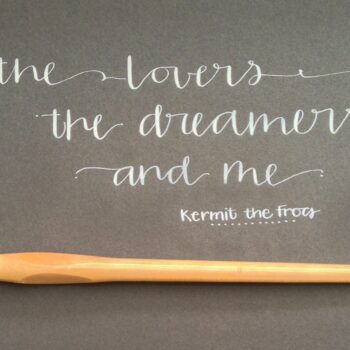 the lovers
the dreamer
and me
Kermit the Frog